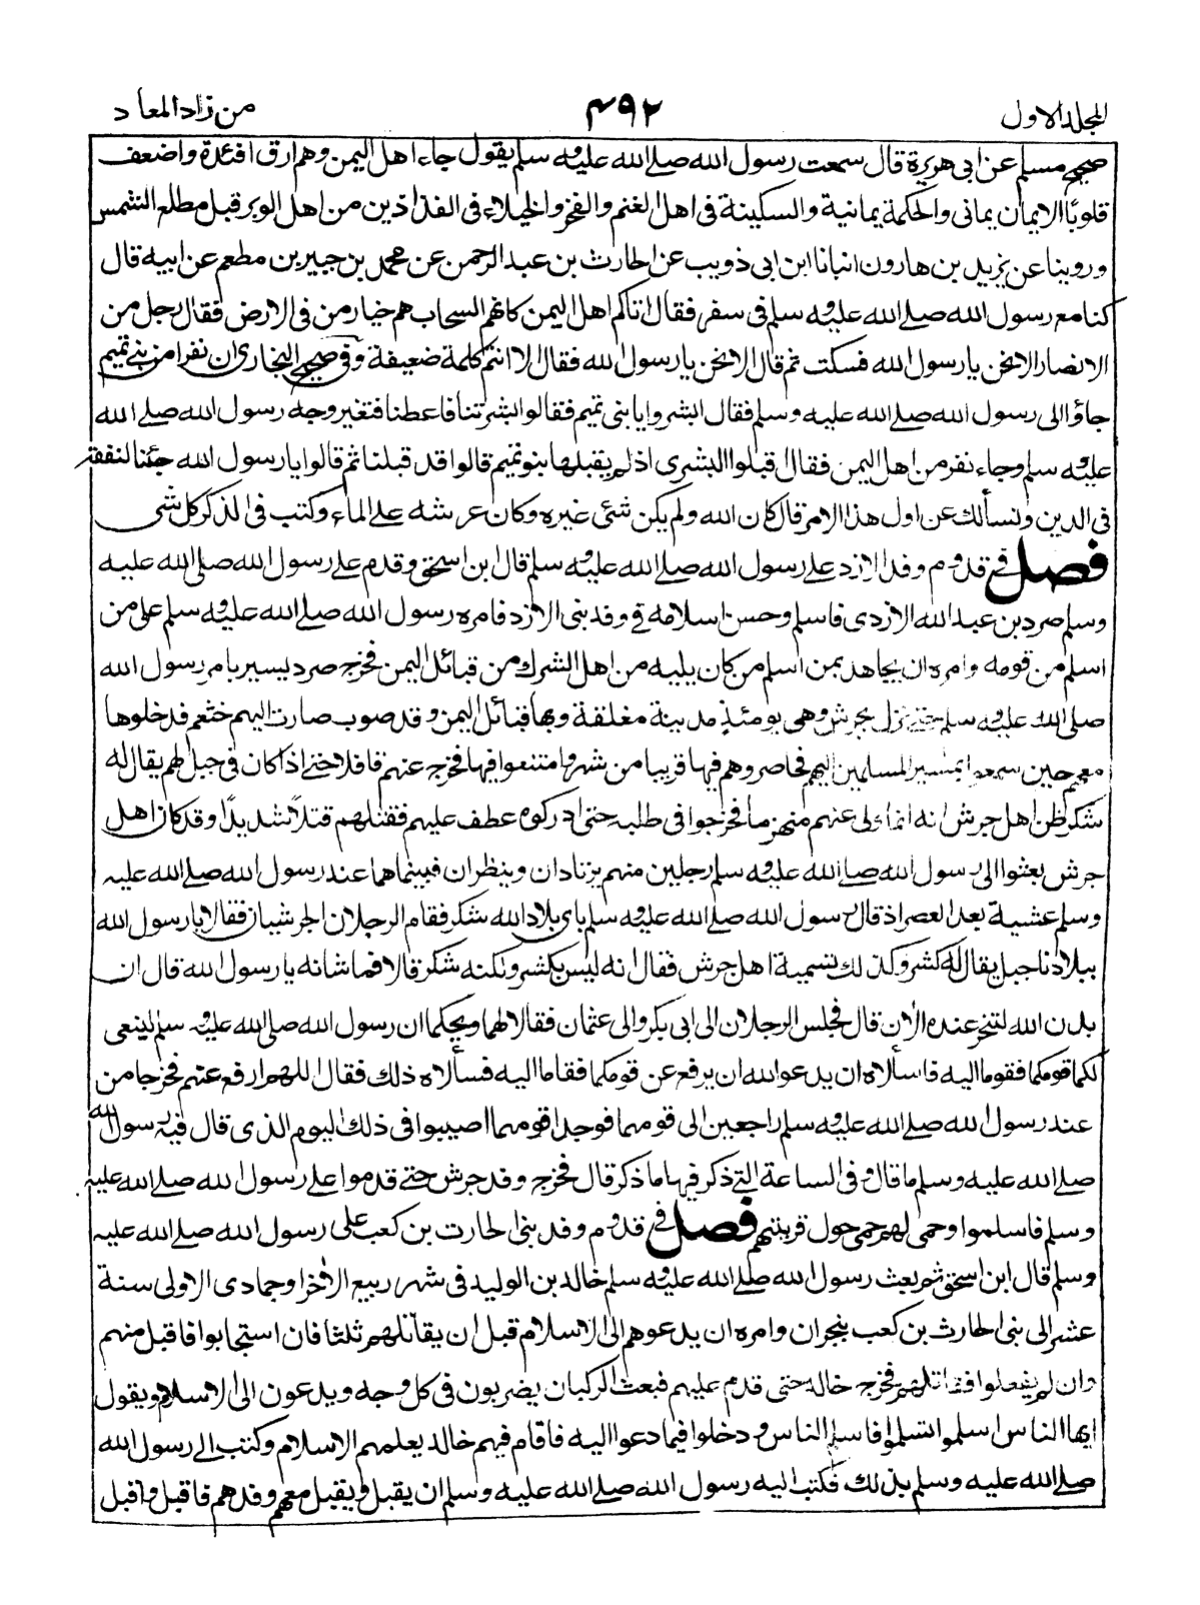 المجلد الاول
٤٩٢
من زاد المعاد
صحيح مسلم عن ابى هريرة قال سمعت رسول الله صلى الله عليه وسلم يقول جاء اهل اليمن وهم ارق افئدة واضعف
قلوبًا الايمان يمانى والحكمة يمانية والسكينة فى اهل الغنم والفخر والخيلاء فى الفدادين من اهل الوبر قبل مطلع الشمس
وروينا عن يزيد بن هارون انبانا ابن ابى ذويب عن الحارث بن عبد الرحمن عن محمد بن جبير بن مطعم عن ابيه قال
كنا مع رسول الله صلى الله عليه وسلم فى سفر فقال اتاكم اهل اليمن كانهم السحاب هم خيار من فى الارض فقال رجل من
الانصار الا نحن يا رسول الله فسكت ثم قال الا نحن يا رسول الله فقال الا انتم كلمة ضعيفة وفى صحيح البخارى ان نفرا من بنى تميم
جاؤا الى رسول الله صلى الله عليه وسلم فقال ابشروا يا بنى تميم فقالوا بشرتنا فاعطنا فتغير وجه رسول الله صلى الله
عليه وسلم وجاء نفر من اهل اليمن فقال اقبلوا البشرى اذ لم يقبلها بنو تميم قالوا قد قبلنا ثم قالوا يا رسول الله جئنا لنتفقه
فى الدين ونسألك عن اول هذا الامر قال كان الله ولم يكن شئ غيره وكان عرشه على الماء وكتب فى الذكر كل شى
فصل فى قدوم وفد الازد على رسول الله صلى الله عليه وسلم قال ابن اسحق وقدم على رسول الله صلى الله عليه
وسلم صرد بن عبد الله الازدى فاسلم وحسن اسلامه فى وفد بنى الازد فامره رسول الله صلى الله عليه وسلم على من
اسلم من قومه وامره ان يجاهد بمن اسلم من كان يليه من اهل الشرك من قبائل اليمن فخرج صرد يسير بامر رسول الله
صلى الله عليه وسلم حتى نزل بجرش وهى يومئذ مدينة مغلقة وبها قبائل اليمن وقد صوب صارت اليهم خثعم فدخلوها
معهم حين سمعوا بمسير المسلمين اليهم فحاصروهم فيها قريبا من شهر وامتنعوا فيها فخرج عنهم قافلا حتى اذا كان فى جبل لهم يقال له
شكر ظن اهل جرش انه انما ولى عنهم منهزما فخرجوا فى طلبه حتى ادركوه عطف عليهم فقتلهم قتلاً شديدًا وقد كان اهل
جرش بعثوا الى رسول الله صلى الله عليه وسلم رجلين منهم يرتادان وينظران فبينما هما عند رسول الله صلى الله عليه
وسلم عشية بعد العصر اذ قال رسول الله صلى الله عليه وسلم باى بلاد الله شكر فقام الرجلان الجرشيان فقالا يا رسول الله
ببلادنا جبل يقال له كشر وكذلك تسمية اهل جرش فقال انه ليس بكشر ولكنه شكر قالا فما شانه يا رسول الله قال ان
بدن الله لتنحر عنده الآن قال فجلس الرجلان الى ابى بكر والى عثمان فقالا لهما ويحكما ان رسول الله صلى الله عليه وسلم لينعى
لكما قومكما فقوما اليه فاسألاه ان يدعو الله ان يرفع عن قومكما فقاما اليه فسألاه ذلك فقال اللهم ارفع عنهم فخرجا من
عند رسول الله صلى الله عليه وسلم راجعين الى قومهما فوجدا قومهما اصيبوا فى ذلك اليوم الذى قال فيه رسول الله
صلى الله عليه وسلم ما قال وفى الساعة التى ذكر فيها ما ذكر قال فخرج وفد جرش حتى قدموا على رسول الله صلى الله عليه
وسلم فاسلموا وحمى لهم حمى حول قريتهم فصل فى قدوم وفد بنى الحارث بن كعب على رسول الله صلى الله عليه
وسلم قال ابن اسحق ثم بعث رسول الله صلى الله عليه وسلم خالد بن الوليد فى شهر ربيع الآخر او جمادى الاولى سنة
عشر الى بنى الحارث بن كعب بنجران وامره ان يدعوهم الى الاسلام قبل ان يقاتلهم ثلثا فان استجابوا فاقبل منهم
وان لم يفعلوا فقاتلهم فخرج خالد حتى قدم عليهم فبعث الركبان يضربون فى كل وجه ويدعون الى الاسلام ويقول
ايها الناس اسلموا تسلموا فاسلم الناس ودخلوا فيما دعوا اليه فاقام فيهم خالد يعلمهم الاسلام وكتب الى رسول الله
صلى الله عليه وسلم بذلك فكتب اليه رسول الله صلى الله عليه وسلم ان يقبل ويقبل معهم وفدهم فاقبل واقبل